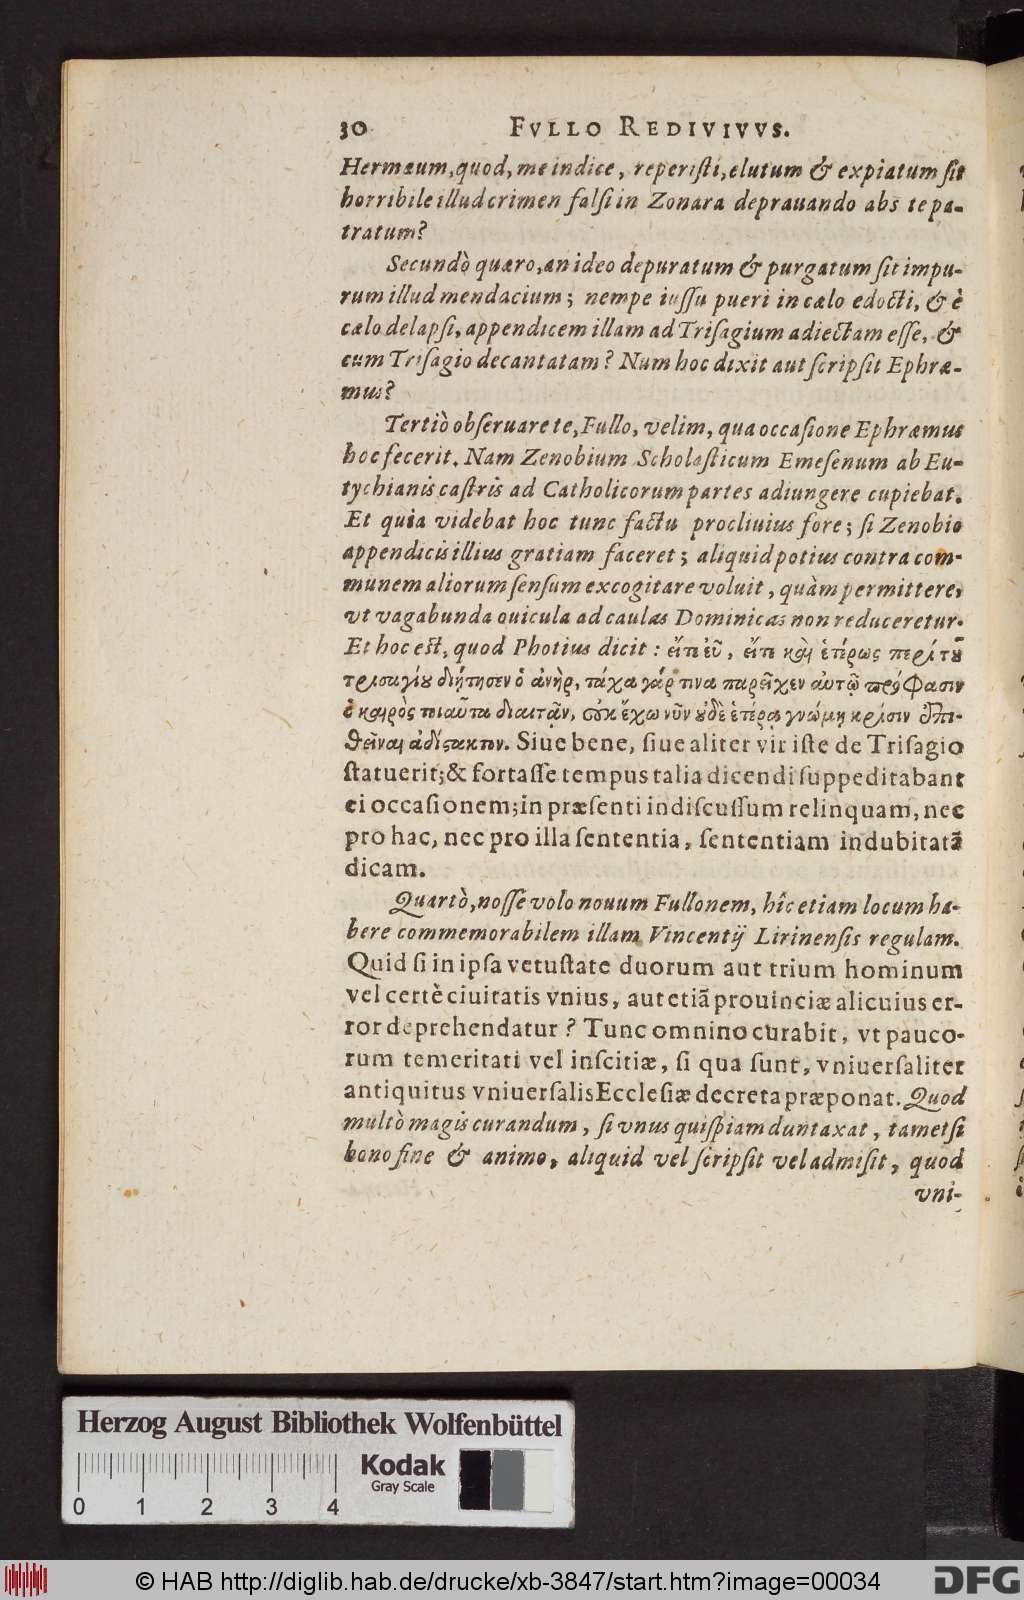 30 FVLLO REDIVIVVS.
Hermæum, quod, me indice, reperisti, elutum & expiatum sit
horribile illud crimen falsi in Zonara deprauando abs te pa-
tratum?
Secundò quæro, an ideo depuratum & purgatum sit impu-
rum illud mendacium; nempe iussu pueri in cælo edocti, & è
cælo delapsi, appendicem illam ad Trisagium adiectam esse, &
cum Trisagio decantatam? Num hoc dixit aut scripsit Ephræ-
mus?
Tertiò obseruare te, Fullo, velim, qua occasione Ephræmus
hoc fecerit. Nam Zenobium Scholasticum Emesenum ab Eu-
tychianis castris ad Catholicorum partes adiungere cupiebat.
Et quia videbat hoc tunc factu procliuius fore; si Zenobio
appendicis illius gratiam faceret; aliquid potius contra com-
munem aliorum sensum excogitare voluit, quàm permittere,
vt vagabunda ouicula ad caulas Dominicas non reduceretur.
Et hoc est, quod Photius dicit: εἴτι εὖ, εἴτι καὶ ἑτέρως περὶ τοῦ
τρισαγίου διῄτησεν ὁ ἀνὴρ, τάχα γάρ τινα παρεῖχεν αὐτῷ πρόφασιν
ὁ καιρὸς τοιαῦτα διαιτᾷν, οὐκ ἔχω νῦν οὐδὲ ἑτέρᾳ γνώμῃ κρίσιν ἐπι-
θεῖναι ἀδίςακτον. Siue bene, siue aliter vir iste de Trisagio
statuerit; & fortasse tempus talia dicendi suppeditabant
ei occasionem; in præsenti indiscussum relinquam, nec
pro hac, nec pro illa sententia, sententiam indubitatã
dicam.
Quartò, nosse volo nouum Fullonem, hîc etiam locum ha-
bere commemorabilem illam Vincentij Lirinensis regulam.
Quid si in ipsa vetustate duorum aut trium hominum
vel certè ciuitatis vnius, aut etiã prouinciæ alicuius er-
ror deprehendatur? Tunc omnino curabit, vt pauco-
rum temeritati vel inscitiæ, si qua sunt, vniuersaliter
antiquitus vniuersalis Ecclesiæ decreta præponat. Quod
multò magis curandum, si vnus quispiam duntaxat, tametsi
bono fine & animo, aliquid vel scripsit vel admisit, quod
vni-
Herzog August Bibliothek Wolfenbüttel
Kodak
Gray Scale
0 1 2 3 4
© HAB http://diglib.hab.de/drucke/xb-3847/start.htm?image=00034
DFG